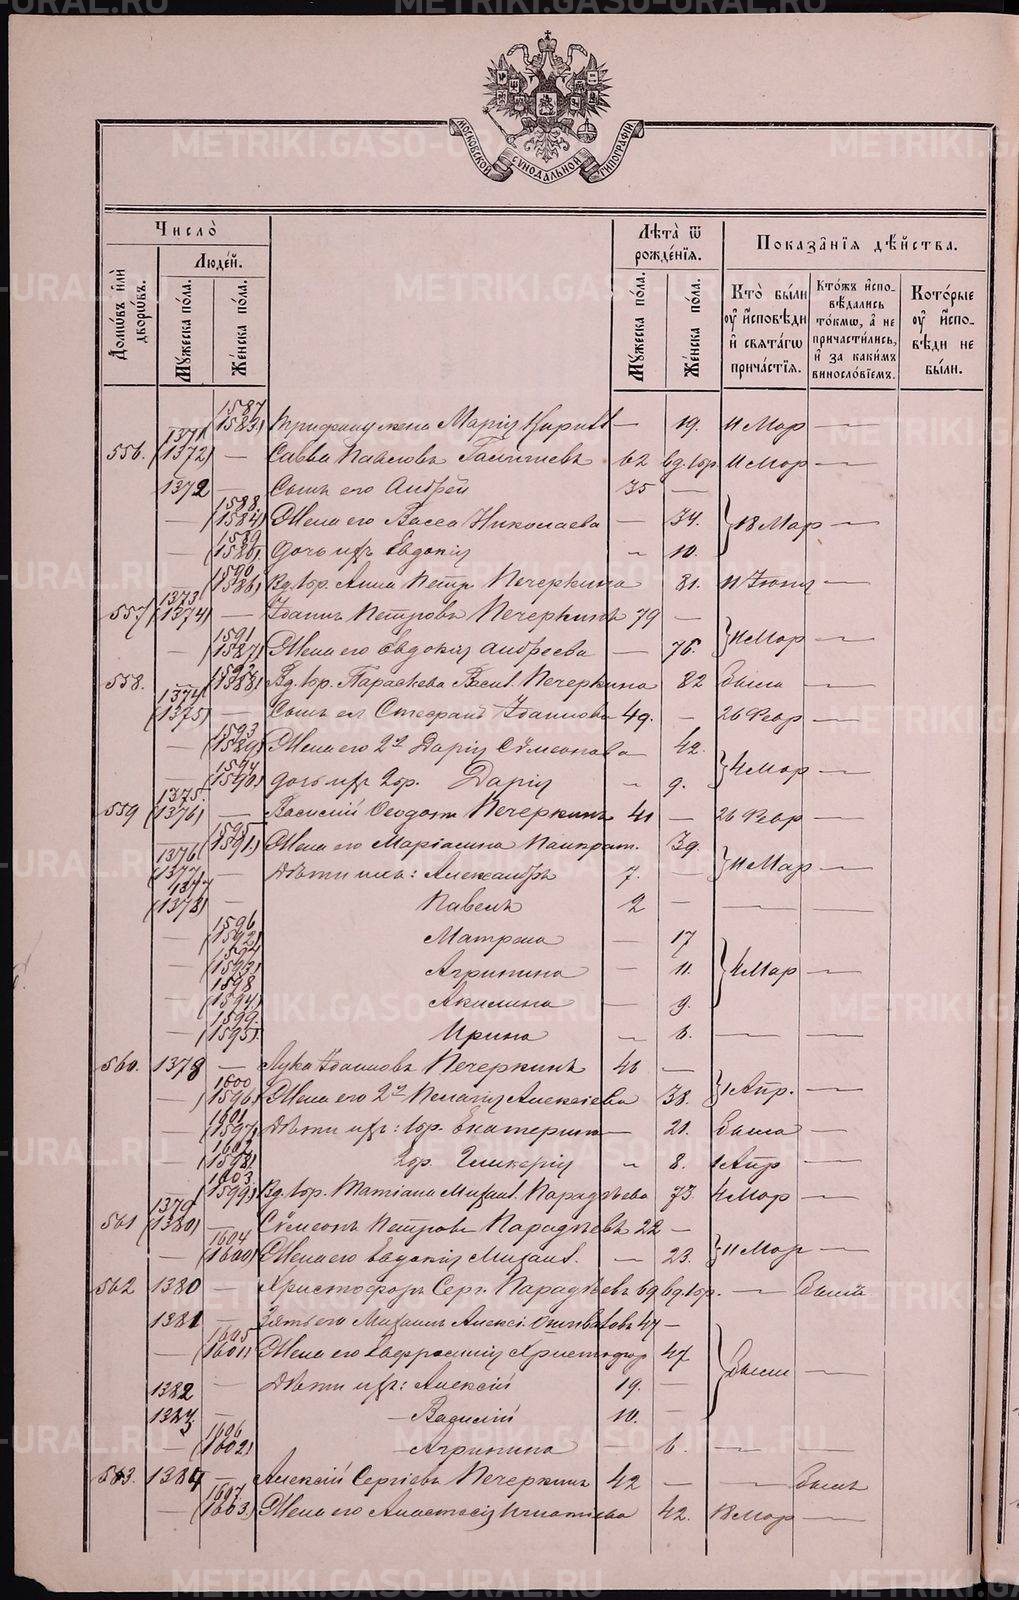 METRIKI.GASO-URAL.RU
МОСКОВСКОЙ СѴНОДАЛЬНОЙ ТИПОГРАФІИ.
Число̀
Людѐй.
Лѣта̀ ѿ рожде́нїѧ.
Показа̑нїѧ дѣ́йства.
Домѡ́въ и҆лѝ дворѡ́въ.
Мꙋ́жеска по́ла.
Же́нска по́ла.
Мꙋ́жеска по́ла.
Же́нска по́ла.
Кто̀ бы́ли ᲂу҆ и҆сповѣ́ди и҆ свѧта́гѡ причⷭ҇тїѧ.
Кто́жъ и҆спо-вѣ́дались то́кмѡ, а҆ не причасти́лись, и҆ за каки́мъ винослѡ́вїемъ.
Кото́рые ᲂу҆ и҆спо-вѣ́ди не бы́ли.
1587 (1583) жена Марія — 19. 11 Мар —
556. 1371 (1372) — Савва Павловъ 62 вд. 11 Мар —
1372 — Сынъ его Андрей 35 —
— 1588 (1584) Жена его Васса Николаева — 34. } 18 Мар —
— 1589 (1585) Дочь ихъ Евдокія — 10.
— 1590 (1586) Анна Петр Печеркина 81. —
557 1373 (1374) — Іоаннъ Петровъ Печеркинъ 79 —
— 1591 (1587) Жена его Евдокія Андреева — 76. } 11 Мар —
558. — 1592 (1588) Параскева Васил. Печеркина 82 Была —
1374 (1375) — Сынъ ея Стефанъ Іоанновъ 49. — 26 Февр —
— 1593 (1589) Жена его 2я Дарія Сѵмеонова 42.
— 1594 (1590) Дочь ихъ Дарія — 9. } 4 Мар —
559 1375. (1376) — Василій Ѳеодот Печеркинъ 41 — 26 Февр —
— 1595 (1591) Жена его Маріамна Панкрат. 39.
1376 (1377) — Дѣти ихъ: Александръ 7. — } 11 Мар —
1377 (1378) — Павелъ 2 — — —
— 1596 (1592) Матрона — 17
— 1597 (1593) Агрипина — 11. } 4 Мар —
— 1598 (1594) Акилина — 9.
— 1599 (1595) Ирина — 6. — —
560. 1378 — Лука Іоанновъ Печеркинъ 46 —
— 1600 (1596) Жена его 2я Пелагія Алексіева 38. } 1 Апр. —
— 1601 (1597) Дѣти ихъ: Екатерина — 21. Была —
— 1602 (1598) Гликерія — 8. 1 Апр —
1603 (1599) Татіана Михаил. Парадѣева 73. 4 Мар —
561 1379 (1380) — Сѵмеонъ Петровъ Парадѣевъ 22 —
— 1604 (1600) Жена его Евдокія Михаил. — 23. } 11 Мар —
562 1380 — Христофоръ Серг. Парадѣевъ 69 — Былъ
1381 — Зять его Михаилъ Алексі. 47 —
— 1605 (1601) Жена его Евфросинія Христофор 47
1382 — Дѣти ихъ: Алексій 19. — } Были —
1383 — Василій 10. —
— 1606 (1602) — Агрипина — 6. — —
563. 1384 — Алексій Сергіевъ Печеркинъ 42 — — Былъ
— 1607 (1603) Жена его Анастасія Игнатіева 42. 18 Мар —